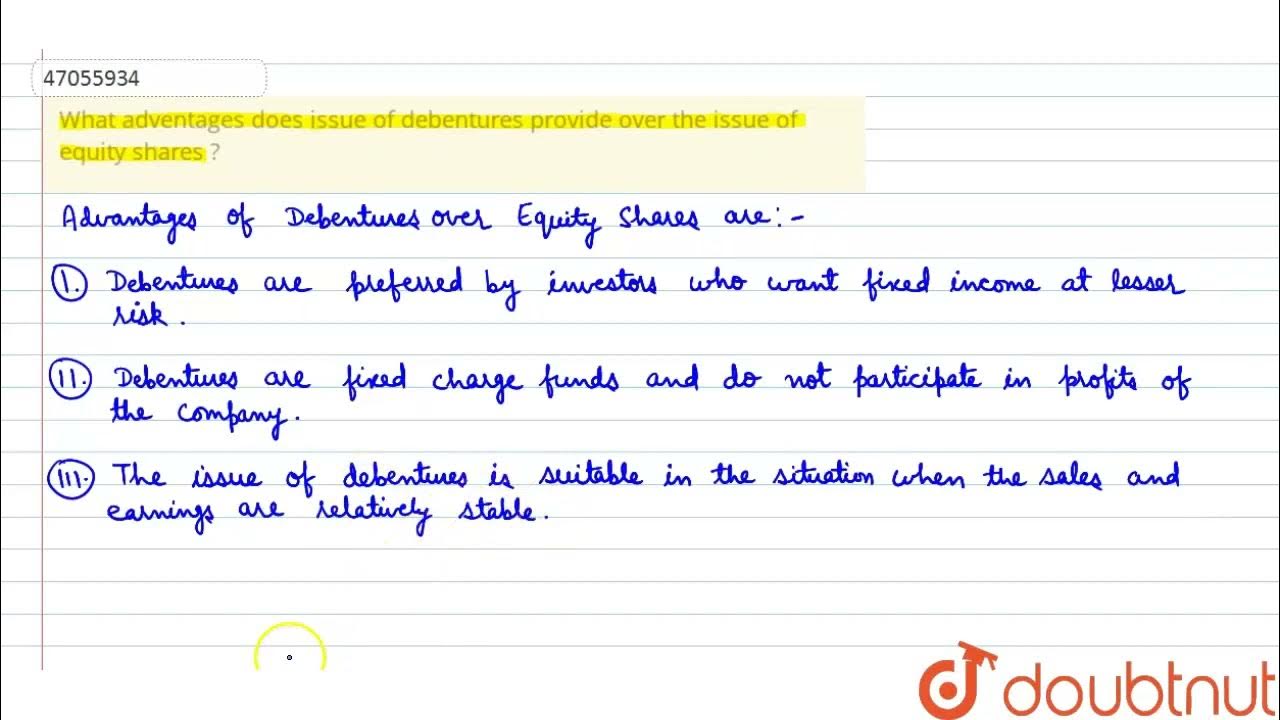 47055934
What adventages does issue of debentures provide over the issue of
equity shares ?
Advantages of Debentures over Equity Shares are:-
I. Debentures are preferred by investors who want fixed income at lesser
risk.
II. Debentures are fixed charge funds and do not participate in profits of
the company.
III. The issue of debentures is suitable in the situation when the sales and
earnings are relatively stable.
doubtnut